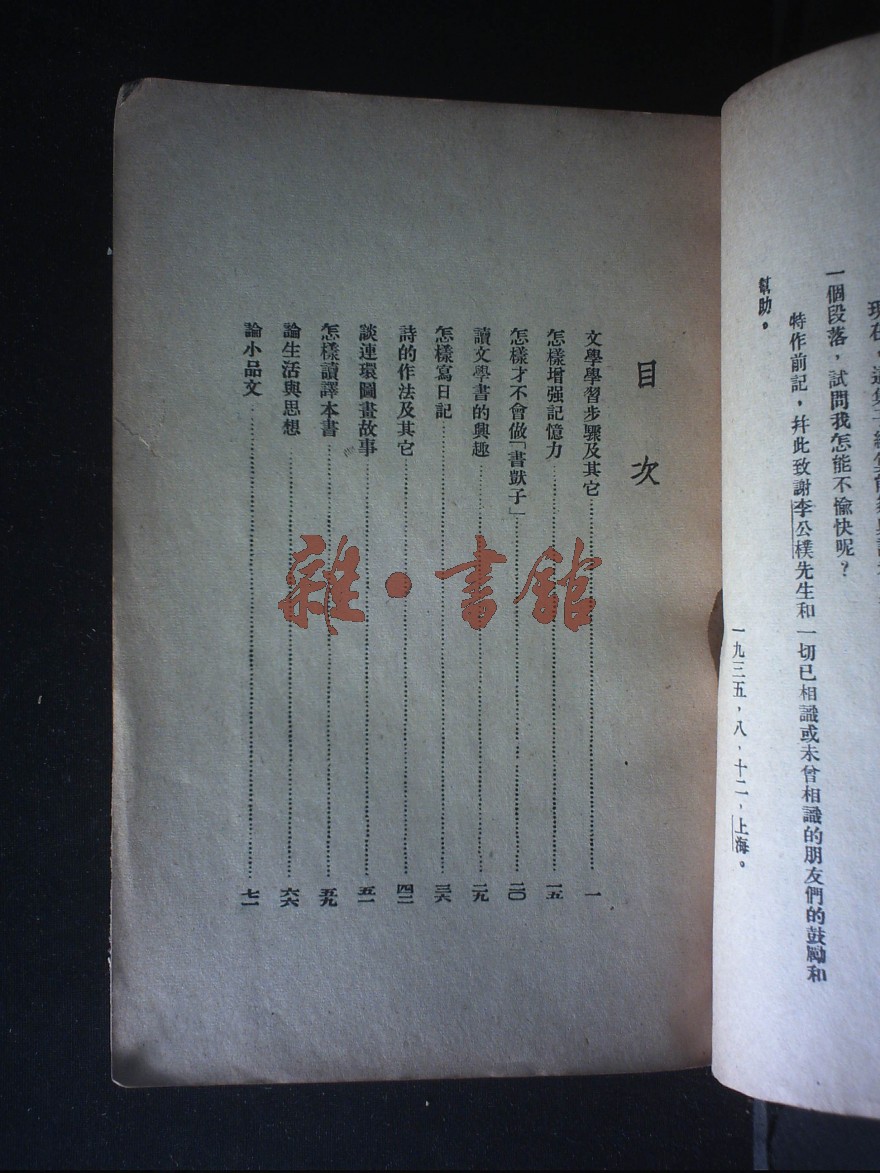 一個段落，試問我怎能不愉快呢？
特作前記，幷此致謝李公樸先生和一切已相識或未曾相識的朋友們的鼓勵和
幫助。
一九三五，八，十二，上海。
目次
文學學習步驟及其它…………一
怎樣增强記憶力…………一五
怎樣才不會做「書獃子」…………二〇
讀文學書的興趣…………二九
怎樣寫日記…………三六
詩的作法及其它…………四二
談連環圖畫故事…………五一
怎樣讀譯本書…………五九
論生活與思想…………六六
論小品文…………七一
雜·書館